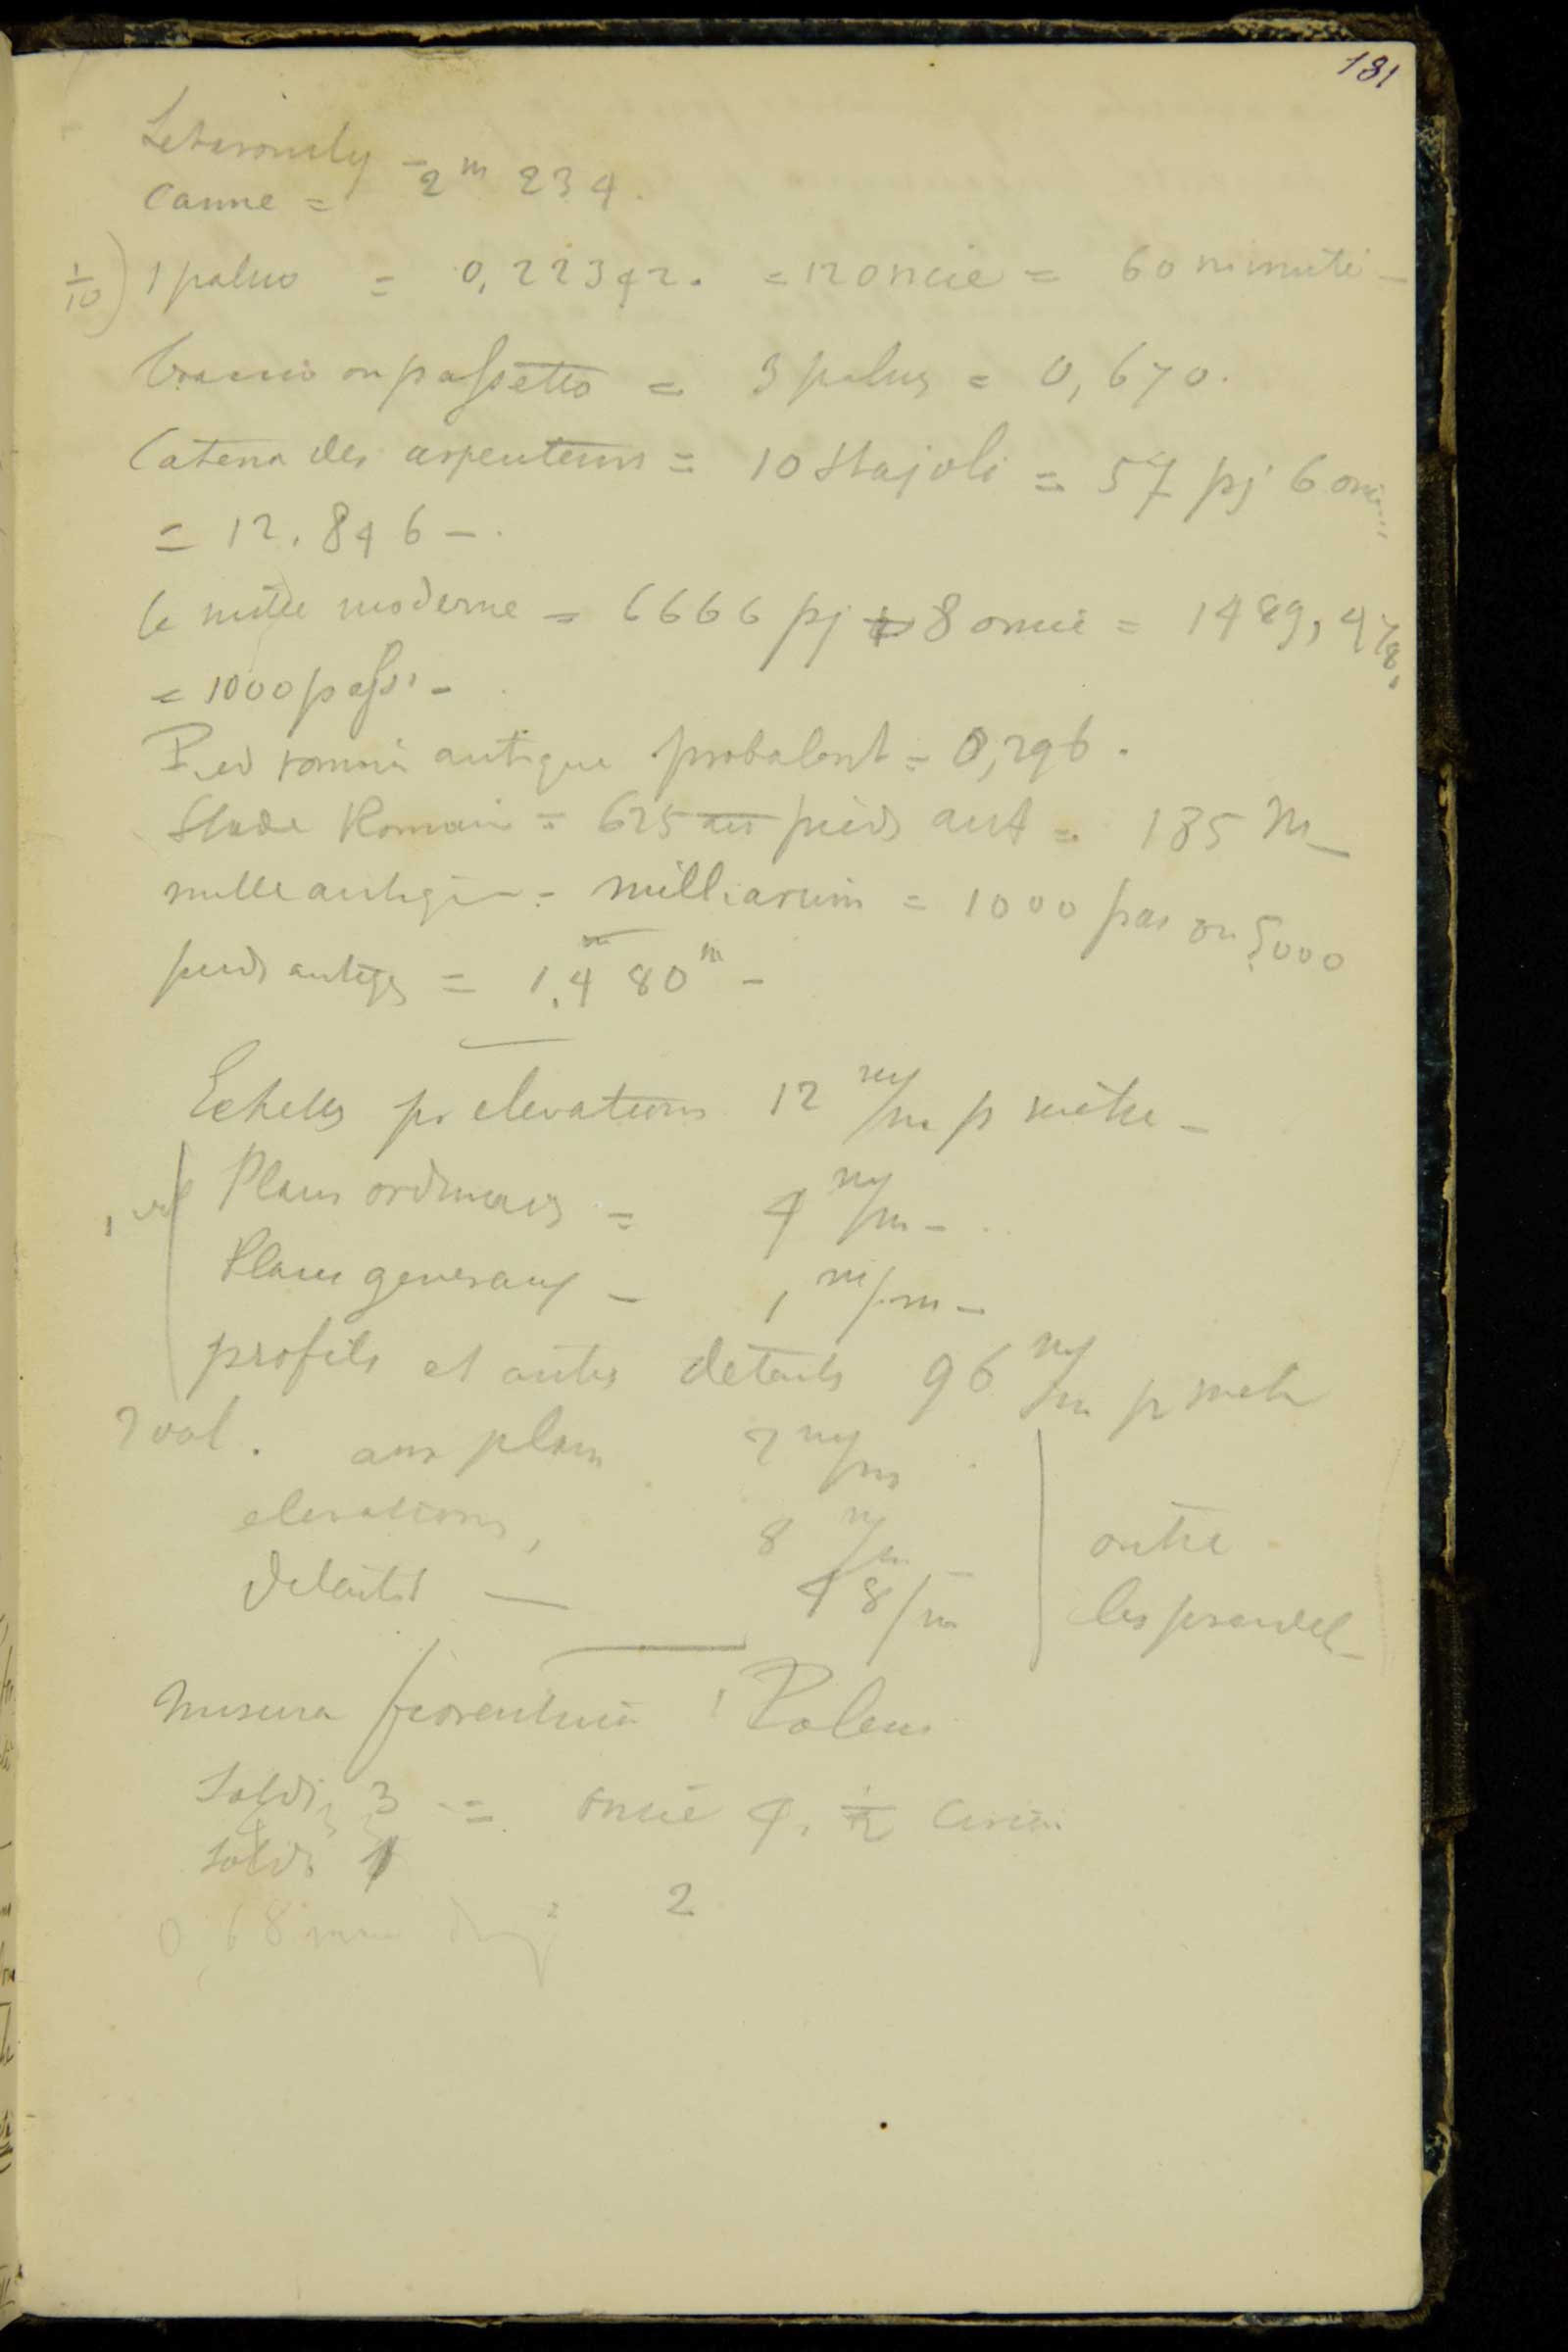 131
Letarouilly –
Canne = 2 m 234.
1/10) 1 palmo = 0,22342. = 12 oncie = 60 minuti –
braccio ou passetto = 3 palmes = 0,670.
Catena des arpenteurs = 10 Stajoli = 57 p 6 oncie
= 12.846 –.
le mille moderne = 6666 p 8 oncie = 1489,478.
= 1000 passi –
Pied romain antique probablent = 0,296.
Stade Romain = 625 pieds ant = 185 M_
mille antique = milliarium = 1000 pas ou 5000
pieds antiqs = 1.480 m –
Echelles pr elevations 12 m/m p mètre –
1 vol Plans ordinaires = 4 m/m –
Plans generaux – 1 m/m –
profils et autres details 96 m/m p metre
2 vol. aux plans 2 m/m
elevations, 8 m/m outre
details — 48/m les
Misura fiorentina Palmi
Soldi 3 = oncie 4. 1/2
Soldi 1
2
0,68